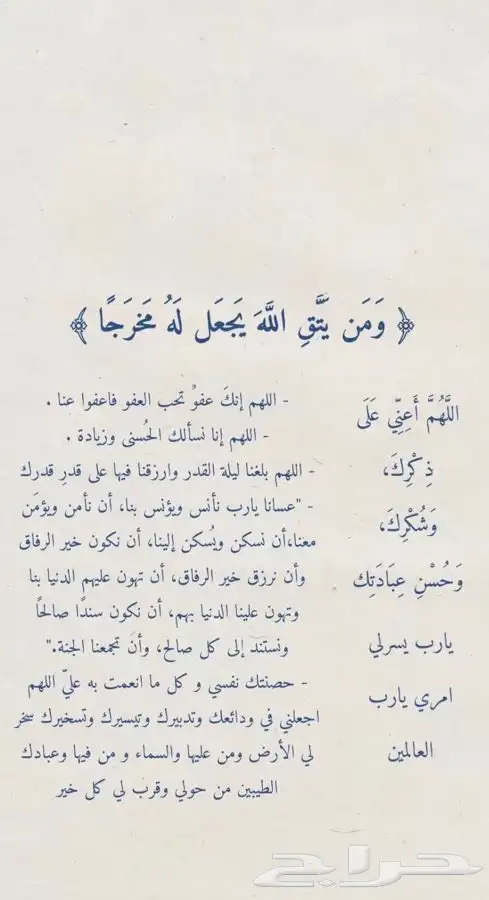 ﴿ وَمَن يَتَّقِ اللَّهَ يَجعَل لَهُ مَخرَجًا ﴾
اللَّهُمَّ أَعِنِّي عَلَى
ذِكْرِكَ،
وَشُكْرِكَ،
وَحُسْنِ عِبَادَتِك
يارب يسرلي
امري يارب
العالمين
- اللهم إنكَ عفوٌ تحب العفو فاعفوا عنا .
- اللهم إنا نسألك الحُسنى وزيادة .
- اللهم بلغنا ليلة القدر وارزقنا فيها على قدرِ قدرك
- "عسانا يارب نأنس ويؤنس بنا، أن نأمن ويؤمَن
معنا،أن نسكن ويُسكن إلينا، أن نكون خير الرفاق
وأن نرزق خير الرفاق، أن تهون عليهم الدنيا بنا
وتهون علينا الدنيا بهم، أن نكون سندًا صالحًا
ونستند إلى كل صالح، وأن تجمعنا الجنة."
- حصنتك نفسي و كل ما انعمت به عليّ اللهم
اجعلني في ودائعك وتدبيرك وتيسيرك وتسخيرك سخر
لي الأرض ومن عليها والسماء و من فيها وعبادك
الطيبين من حولي وقرب لي كل خير
حراج